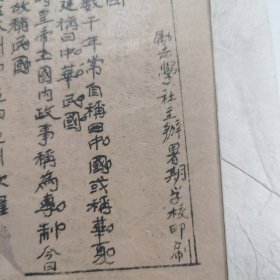 勵志學社主辦暑期學校印刷
國
數千年常自稱曰中國或稱華夏
建稱曰中華民國
時皇帝主國內政事稱為專制今曰
故稱民國